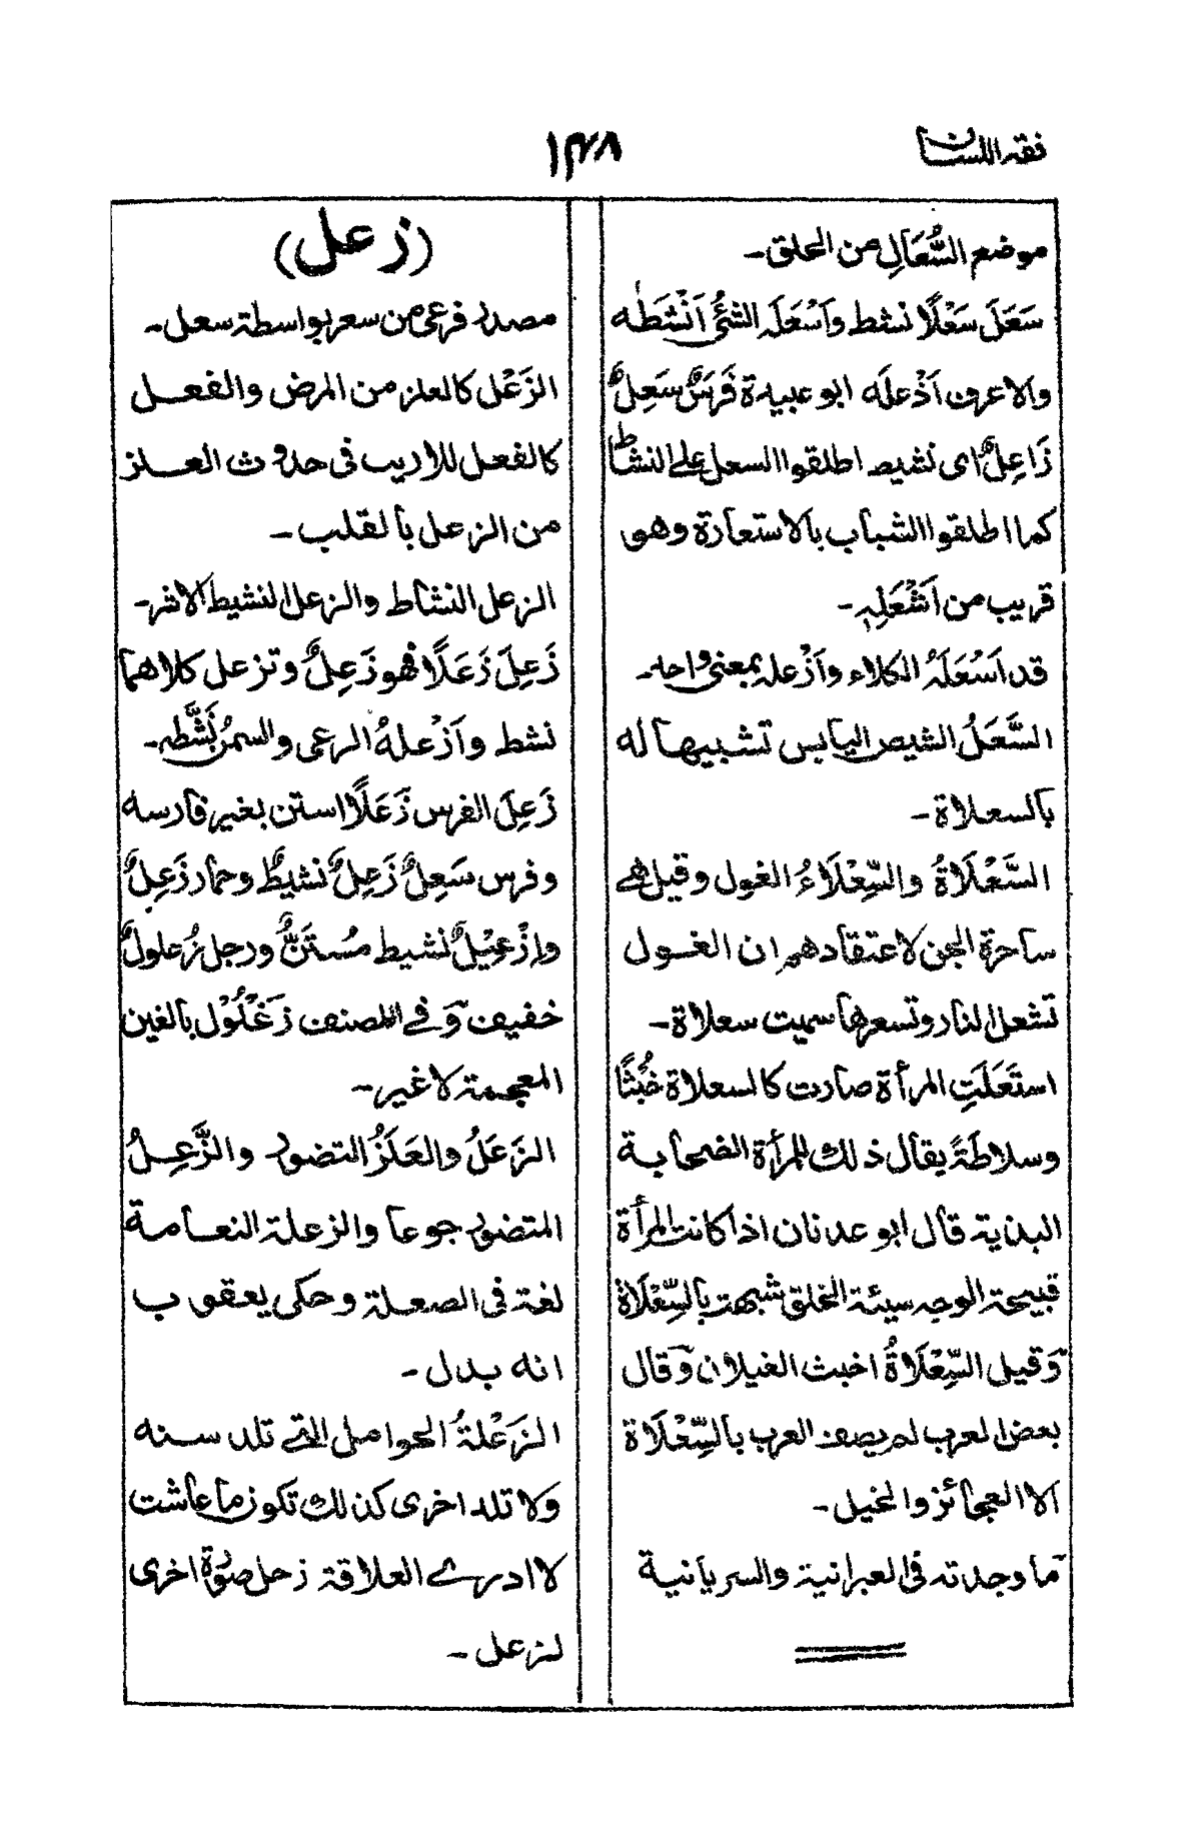 فقه اللسان
١٣٨
موضع السُّعَالِ من الحلق۔
سَعَلَ سَعْلًا نشط وَاَسْعَلَه الشئُ اَنْشَطَه
والاعرف اَزْعله ابو عبيدة فَرَسٌ سَعِلٌ
زَاعِلٌ اى نشيط اطلقوا السعل على النشاط
كما اطلقوا الشباب بالاستعارة وهو
قريب من اَشْعَلِه۔
قد اَسْعَلَهُ الكلاء وَاَزْعله بمعنى واحد۔
السَّعَلُ الشيص اليابس تشبيها له
بالسعلاة۔
السَّعْلَاةُ والسِّعْلَاءُ الغول وقيل هى
ساحرة الجن لاعتقادهم ان الغول
تشعل النار وتسعرها سميت سعلاة۔
استَعَلَتِ المرأة صارت كالسعلاة خُبْثًا
وسلاطَةً يقال ذلك للمرأة الصخابة
البذية قال ابو عدنان اذا كانت المرأة
قبيحة الوجه سيئة الخلق شبهت بالسِّعْلَاة
وَقيل السِّعْلَاةُ اخبث الغيلان وَقال
بعض العرب لم يصف العرب بالسِّعْلَاة
الا العجائز والخيل۔
ما وجدته فى العبرانية والسريانية
(زعل)
مصدر فرعى من سعر بواسطة سعل۔
الزَعْل كالعلز من المرض والفعل
كالفعل للاريب فى حدوث العلز
من الزعل بالقلب۔
الزعل النشاط والزعل النشيط الاشر۔
زَعِلَ زَعَلًا فهو زَعِلٌ وتزعل كلاهما
نشط وَاَزْعلهُ الرعى والسمنُ نَشَّطه۔
زَعِلَ الفرس زَعَلًا استن بغير فارسه
وفرس سَعِلٌ زَعِلٌ نشيطٌ وحمار زَعِلٌ
واِزْعِيْلٌ نشيط مُسْتَنٌّ ورجل زُعلولٌ
خفيف وَفى المصنف زَغْلُوْل بالغين
المعجمة لاغير۔
الزَعَلُ والعَلَزُ التضور والزَّعِلُ
المتضور جوعا والزعلة النعامة
لغة فى الصعلة وحكى يعقوب
انه بدل۔
الزَعْلةُ الحوامل التى تلد سنه
ولا تلد اخرى كذلك تكون ما عاشت
لا ادرى العلاقة زحل صورة اخرى
لزعل۔